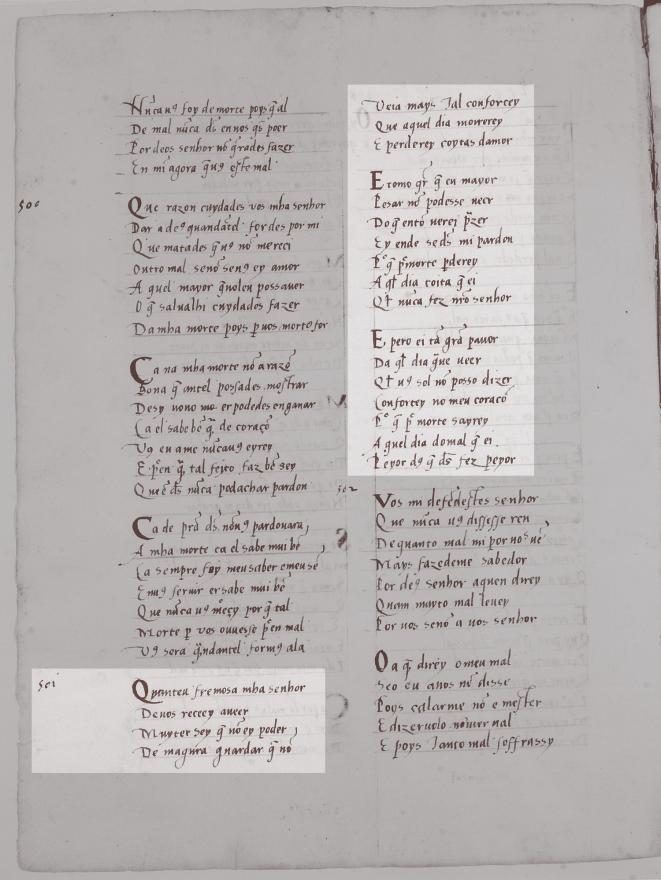 Nũca uꝯ foy de morte poys q̃ al
De mal nũca d̃s en nos q̃s poer
Por deos senhor nõ q̃rades fazer
En mi agora q̃ uꝯ este mal
500
Que razon cuydades vos mha senhor
Dar a deꝯ quand antel fordes por mi
Que matades q̃ uꝯ nõ mereci
Outro mal senõ
A quel mayor q̃
O q̃ salualhi cuydades fazer
Da mha morte poys ꝑ uos morto for
Ca na mha morte nõ a razõ
Bona q̃ antel possades mostrar
Desy nono er podedes enganar
Ca el sabe bẽ q̃ de coraçõ
Vꝯ eu ame nũca uꝯ eyrey
E pᵉ en q̃ tal feito faz bẽ sey
Que ẽ d̃s nũca pod achar pardon
Ca de d̃s nõ uꝯ pardouara
A mha morte ca el sabe mui bẽ
Ca sempre foy meu saber e meu sẽ
En uꝯ seruir er sabe mui bẽ
Que nũca uꝯ por q̃ tal
Morte ꝑ vos ouuesse pᵉ en mal
Vꝯ sera q̃nd antel for ala
501
Quanteu fremosa mha senhor
De uos receey aueer
Muyter sey q̃ nõ ey poder
De magura guardar q̃ nõ
Veia mays Tal confort ey
Que aquel dia morrerey
E perderey coytas damor
E como q̃r q̃ eu mayor
Pesar nõ podesse ueer
Do q̃ entõ uerei p̃zer
Ey ende se d̃s mi pardon
Pᵒ q̃ pᵉ morte perderey
A q̃l dia coita q̃ ei
Q̃l nũca fez nr̃o senhor
E pero ei tã grã pauor
Da q̃l dia que ueer
Q̃l uꝯ sol nõ posso dizer
Confort ey no meu coraçõ
Pᵒ q̃ pᵉ morte sayrey
A quel dia do mal q̃ ei
Peyor do q̃ d̃s fez peyor
502
Vos mi defẽdestes senhor
Que nũca uꝯ dissesse ren
De quanto mal mi por uos uẽ
Mays fazedeme sabedor
Por deꝯ senhor a quen direy
Quam muyto mal leuey
Por uos senõ a uos senhor
Oa q̃ direy o meu mal
Seo eu a uos nõ disse
Poys calarme nõ e mester
E dizeruolo nõ uer ual
E poys Tanto mal soffr assy